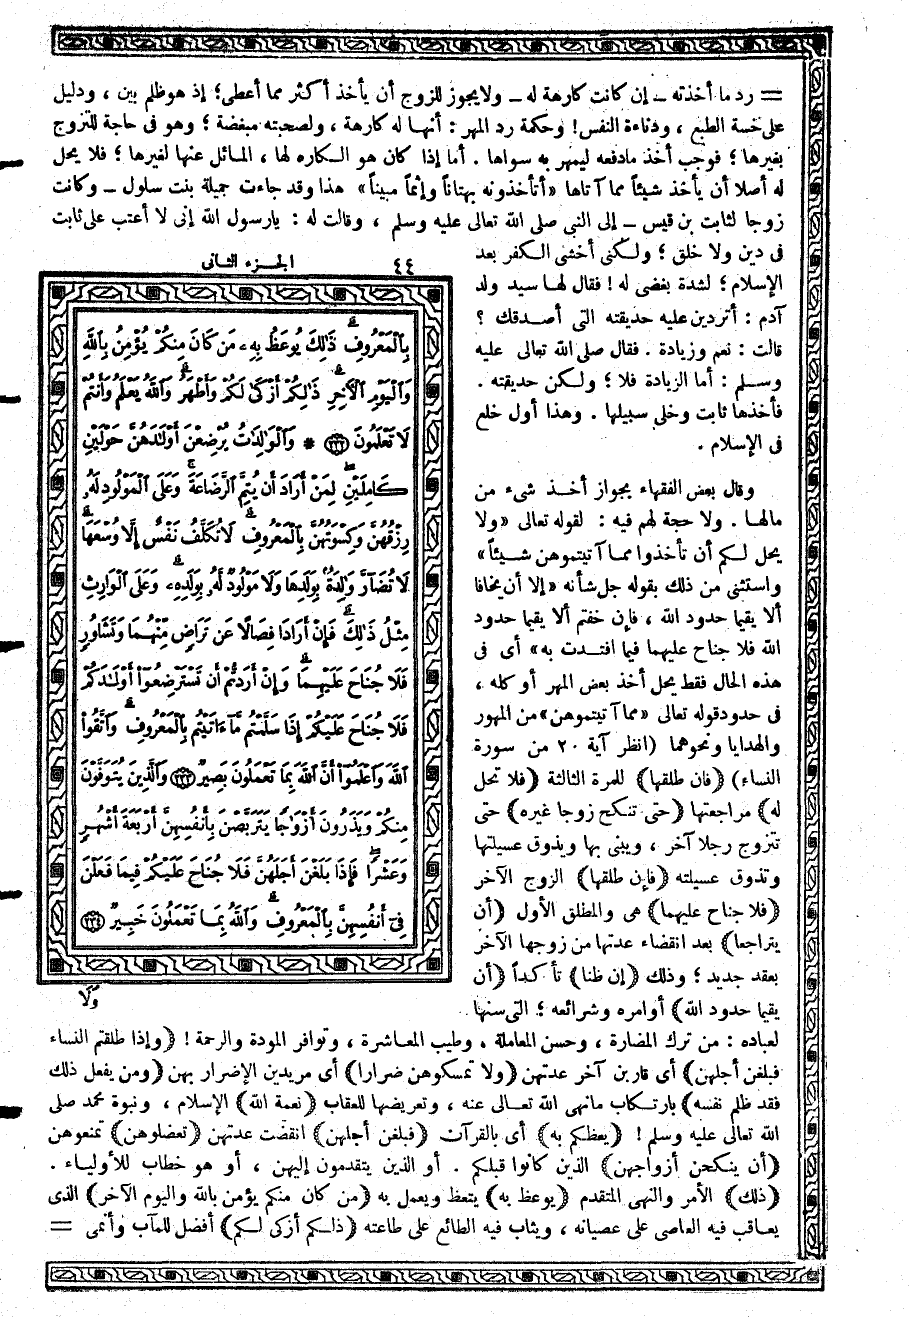 = رد ما أخذته ــ إن كانت كارهة له ــ ولا يجوز للزوج أن يأخذ أكثر مما أعطى؛ إذ هو ظلم بين ، ودليل
على خسة الطبع ، ودناءة النفس! وحكمة رد المهر : أنها له كارهة ، ولصحبته مبغضة ؛ وهو فى حاجة للتزوج
بغيرها ؛ فوجب أخذ مادفعه ليمهر به سواها . أما إذا كان هو الكاره لها ، المائل عنها لغيرها ؛ فلا يحل
له أصلا أن يأخذ شيئاً مما آتاها «أتأخذونه بهتاناً وإثماً مبيناً» هذا وقد جاءت جميلة بنت سلول ــ وكانت
زوجا لثابت بن قيس ــ إلى النبى صلى الله تعالى عليه وسلم ، وقالت له : يارسول الله إنى لا أعتب على ثابت
فى دين ولا خلق ؛ ولكنى أخشى الكفر بعد
الإسلام ؛ لشدة بغضى له ! فقال لها سيد ولد
آدم : أتردين عليه حديقته التى أصدقك ؟
قالت : نعم وزيادة . فقال صلى الله تعالى عليه
وسلم : أما الزيادة فلا ؛ ولكن حديقته .
فأخذها ثابت وخلى سبيلها . وهذا أول خلع
فى الإسلام .
وقال بعض الفقهاء بجواز أخذ شىء من
مالها . ولا حجة لهم فيه : لقوله تعالى «ولا
يحل لكم أن تأخذوا مما آتيتموهن شيئاً»
واستثنى من ذلك بقوله جل شأنه «إلا أن يخافا
ألا يقيما حدود الله ، فإن خفتم ألا يقيما حدود
الله فلا جناح عليهما فيما افتدت به» أى فى
هذه الحال فقط يحل أخذ بعض المهر أو كله ،
فى حدود قوله تعالى «مما آتيتموهن» من المهور
والهدايا ونحوهما (انظر آية ٢٠ من سورة
النساء) (فان طلقها) للمرة الثالثة (فلا تحل
له) مراجعتها (حتى تنكح زوجا غيره) حتى
تتزوج رجلا آخر ، ويبنى بها ويذوق عسيلتها
وتذوق عسيلته (فإن طلقها) الزوج الآخر
(فلا جناح عليهما) هى والمطلق الأول (أن
يتراجعا) بعد انقضاء عدتها من زوجها الآخر
بعقد جديد ؛ وذلك (إن ظنا) تأكداً (أن
يقيما حدود الله) أوامره وشرائعه ؛ التى سنها
لعباده : من ترك المضارة ، وحسن المعاملة ، وطيب المعاشرة ، وتوافر المودة والرحمة ! (وإذا طلقتم النساء
فبلغن أجلهن) أى قاربن آخر عدتهن (ولا تمسكوهن ضرارا) أى مريدين الإضرار بهن (ومن يفعل ذلك
فقد ظلم نفسه) بارتكاب مانهى الله تعالى عنه ، وتعريضها للعقاب (نعمة الله) الإسلام ، ونبوة محمد صلى
الله تعالى عليه وسلم ! (يعظكم به) أى بالقرآن (فبلغن أجلهن) انقضت عدتهن (تعضلوهن) تمنعوهن
(أن ينكحن أزواجهن) الذين كانوا قبلكم . أو الذين يتقدمون إليهن ، أو هو خطاب للأولياء .
(ذلك) الأمر والنهى المتقدم (يوعظ به) يتعظ ويعمل به (من كان منكم يؤمن بالله واليوم الآخر) الذى
يعاقب فيه العاصى على عصيانه ، ويثاب فيه الطائع على طاعته (ذلكم أزكى لكم) أفضل للمآب وأنمى =
٤٤ الجزء الثانى
بِٱلْمَعْرُوفِ ۗ ذَٰلِكَ يُوعَظُ بِهِۦ مَن كَانَ مِنكُمْ يُؤْمِنُ بِٱللَّهِ
وَٱلْيَوْمِ ٱلْآخِرِ ۗ ذَٰلِكُمْ أَزْكَىٰ لَكُمْ وَأَطْهَرُ ۗ وَٱللَّهُ يَعْلَمُ وَأَنتُمْ
لَا تَعْلَمُونَ ٢٣٢ * وَٱلْوَٰلِدَٰتُ يُرْضِعْنَ أَوْلَٰدَهُنَّ حَوْلَيْنِ
كَامِلَيْنِ ۖ لِمَنْ أَرَادَ أَن يُتِمَّ ٱلرَّضَاعَةَ ۚ وَعَلَى ٱلْمَوْلُودِ لَهُۥ
رِزْقُهُنَّ وَكِسْوَتُهُنَّ بِٱلْمَعْرُوفِ ۚ لَا تُكَلَّفُ نَفْسٌ إِلَّا وُسْعَهَا ۚ
لَا تُضَآرَّ وَٰلِدَةٌ بِوَلَدِهَا وَلَا مَوْلُودٌ لَّهُۥ بِوَلَدِهِۦ ۚ وَعَلَى ٱلْوَارِثِ
مِثْلُ ذَٰلِكَ ۗ فَإِنْ أَرَادَا فِصَالًا عَن تَرَاضٍ مِّنْهُمَا وَتَشَاوُرٍ
فَلَا جُنَاحَ عَلَيْهِمَا ۗ وَإِنْ أَرَدتُّمْ أَن تَسْتَرْضِعُوٓا۟ أَوْلَٰدَكُمْ
فَلَا جُنَاحَ عَلَيْكُمْ إِذَا سَلَّمْتُم مَّآ ءَاتَيْتُم بِٱلْمَعْرُوفِ ۗ وَٱتَّقُوا۟
ٱللَّهَ وَٱعْلَمُوٓا۟ أَنَّ ٱللَّهَ بِمَا تَعْمَلُونَ بَصِيرٌ ٢٣٣ وَٱلَّذِينَ يُتَوَفَّوْنَ
مِنكُمْ وَيَذَرُونَ أَزْوَٰجًا يَتَرَبَّصْنَ بِأَنفُسِهِنَّ أَرْبَعَةَ أَشْهُرٍ
وَعَشْرًا ۖ فَإِذَا بَلَغْنَ أَجَلَهُنَّ فَلَا جُنَاحَ عَلَيْكُمْ فِيمَا فَعَلْنَ
فِىٓ أَنفُسِهِنَّ بِٱلْمَعْرُوفِ ۗ وَٱللَّهُ بِمَا تَعْمَلُونَ خَبِيرٌ ٢٣٤
وَلَا